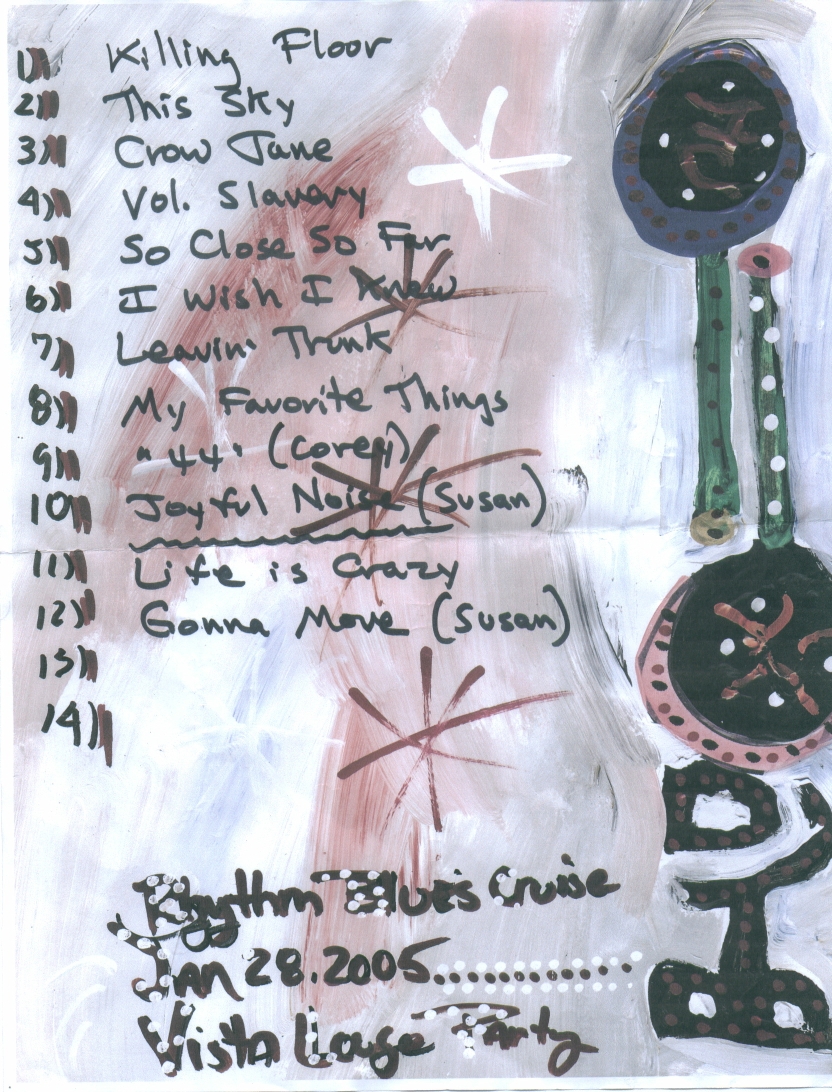 1) Killing Floor
2) This Sky
3) Crow Jane
4) Vol. Slavery
5) So Close So Far
6) I Wish I Knew
7) Leavin' Trunk
8) My Favorite Things
9) "44" (Corey)
10) Joyful Noise (Susan)
11) Life is Crazy
12) Gonna Move (Susan)
13)
14)
Rhythm Blues Cruise
Jan 28.2005
Vista Louge Party